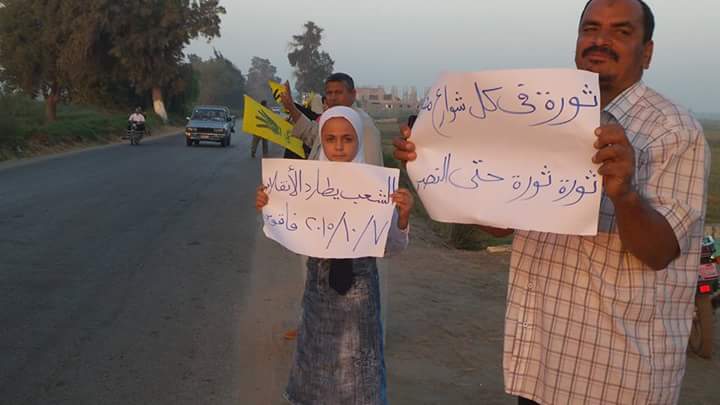 ثورة فى كل شوارع
ثورة ثورة حتى النصر
الشعب يطارد الأنقلاب
٢٠١٥/١٠/٧ فاقوس